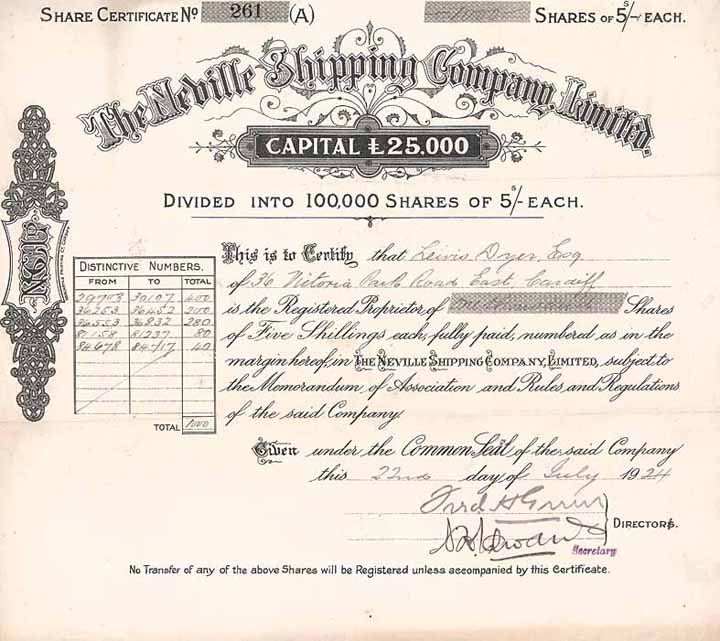 SHARE CERTIFICATE No 261 (A) SHARES OF 5/- EACH.
The Neville Shipping Company, Limited.
CAPITAL £25,000
DIVIDED INTO 100,000 SHARES OF 5/- EACH.
N.S.Co. Ld
This is to Certify that Lewis Dyer, Esq
of 36 Victoria Park Road East, Cardiff
is the Registered Proprietor of Shares
of Five Shillings each, fully paid, numbered as in the
margin hereof, in THE NEVILLE SHIPPING COMPANY, LIMITED, subject to
the Memorandum of Association and Rules and Regulations
of the said Company.
DISTINCTIVE NUMBERS.
FROM TO TOTAL
29708 30107 400
36253 36452 200
36553 36832 280
81158 81237 80
84678 84717 40
TOTAL 1000
Given under the Common Seal of the said Company
this 22nd day of July 1924
DIRECTORS.
Secretary
No Transfer of any of the above Shares will be Registered unless accompanied by this Certificate.